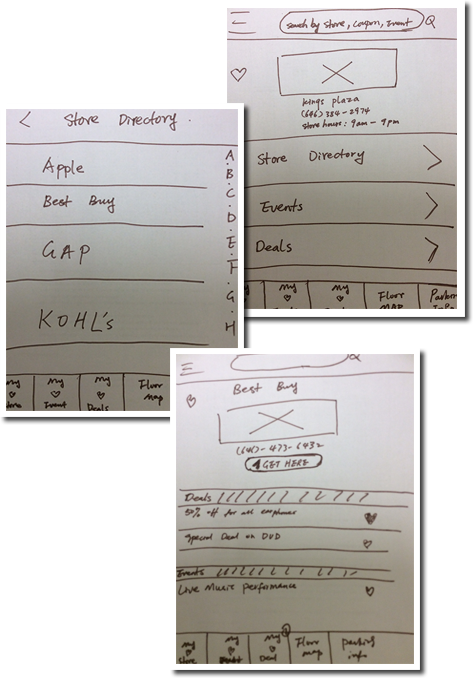 search by store, coupon, Event
Kings plaza
(646) 384-2974
store hours: 9am - 9pm
Store Directory
Events
Deals
my
my
my
Floor
MAP
Parking
Store Directory
Apple
Best Buy
GAP
KOHL's
A
B
C
D
E
F
G
H
my
my
Event
my
Deals
Floor
Map
Best Buy
(646)-473-6432
GET HERE
Deals
50% off for all earphones
special Deal on DVD
Events
Live Music Performance
my
Store
my
my
Deal
Floor
map
parking
info